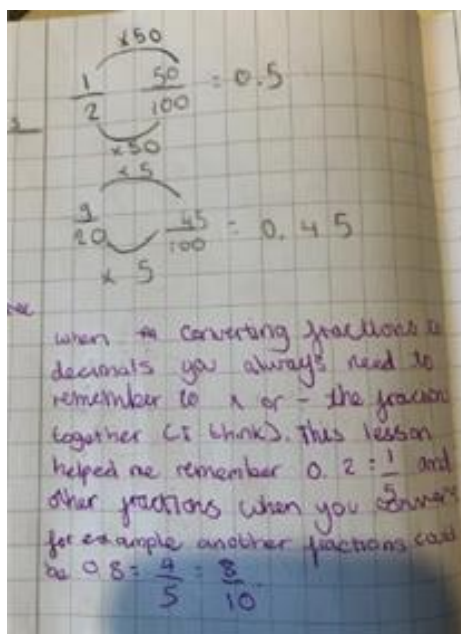 ×50
1/2 50/100 = 0.5
×50
×5
9/20 45/100 = 0.45
× 5
when converting fractions to
decimals you always need to
remember to x or - the fraction
together (I think). This lesson
helped me remember 0.2 = 1/5 and
other fractions when you convert
for example another fractions could
be 0.8 = 4/5 = 8/10